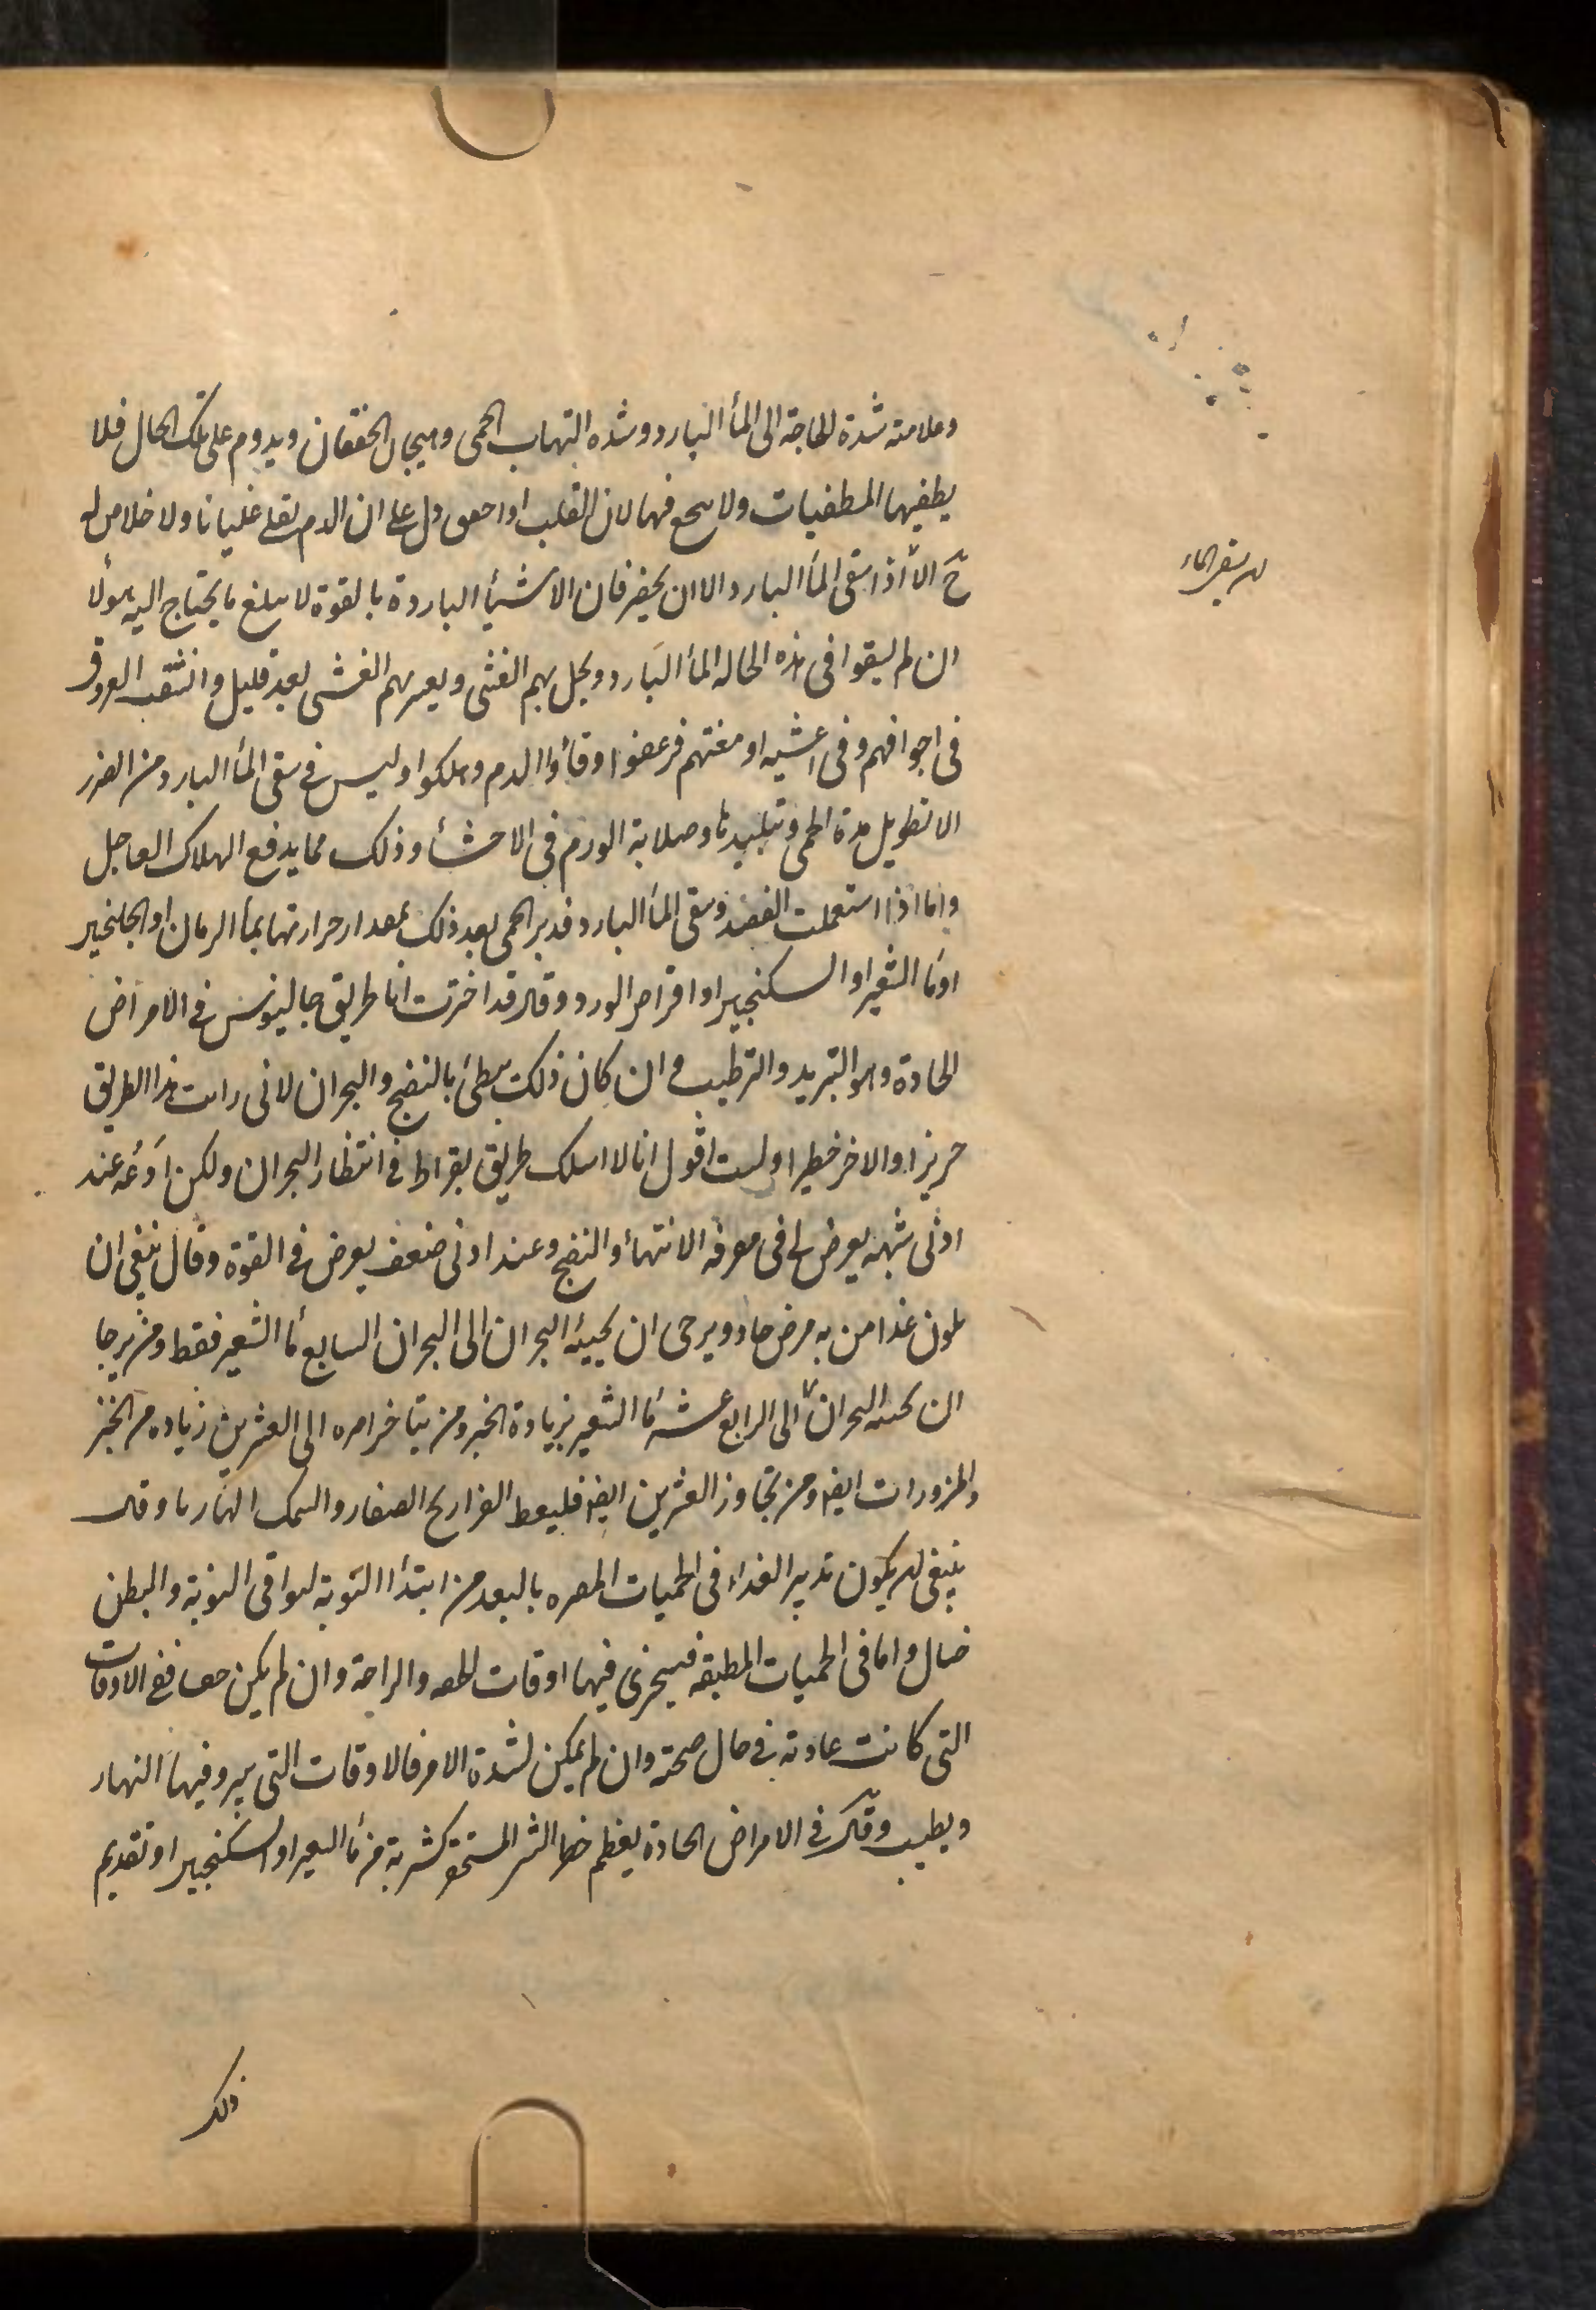 وعلامته شدة الحاجة الى المأ البارد وشده التهاب الحمى وهيجان الخفقان ويدوم على تلك الحال فلا
يطفيها المطفيات ولا فيها لان القلب دل على ان الدم يغلى غليانا ولا خلاص له
حَ الا اذا سقى المأ البارد الا ان يحضر فان الاشيأ الباردة بالقوة لا يبلغ ما يحتاج اليه هولا
ان لم يسقوا فى هذه الحاله المأ البارد ويحل بهم الغشى الغشى بعد قليل وانشقب العروق
فى اجوافهم وفى اغشيه ادمغتهم فرعفوا وقأوا الدم وهلكوا وليس فى سقى المأ البارد من الضرر
الا تطويل مدة الحمى وتبليدها وصلابة الورم فى الاحشأ وذلك مما يدفع الهلاك العاجل
واما اذا استعملت الفصد وسقى المأ البارد فدبر الحمى بعد ذلك بمقدار حرارتها بمأ الرمان او الجلنجبين
اومأ الشعير او السكنجبين او اقراص الورد وقال قد اخترت انا طريق جالينوس فى الامراض
الحادة وهو التبريد والترطيب و ان كان ذلك يبطئ بالنضج والبحران لانى رايت هذا الطريق
حريزا والاخر خطيرا ولست اقول انا لا اسلك طريق بقراط فى انتظار البحران ولكن ادعه عند
ادنى شبهه يعرض لى فى معرفه الانتهأ والنضج وعند ادنى ضعف يعرض فى القوة وقال ينبغى ان
يكون غذا من به مرض حاد ويرجى ان يجيئه البحران الى البحران السابع مأ الشعير فقط ومن يرجا
ان يجيئه البحران الى الرابع عشر مأ الشعير بزيادة الخبز ومن يتاخر امره الى العشرين زياده من الخبز
والمزورات ايضا ومن تجاوز العشرين ايضا فليعط الفراريج الصغار والسمك وقال
ينبغى ان يكون تدبير الغداء فى الحميات بالبعد من ابتدأ النوبة النوبة والبطن
خال واما فى الحميات المطبقه فيتحرى فيها اوقات الخفه والراحة وان لم يكن ففى الاوقات
التى كانت عادته فى حال صحته وان لم يمكن لشدة الامر فالاوقات التى يبرد فيها النهار
ويطيب وقال فى الامراض الحادة يعظم من مأ الشعير او السكنجبين او تقديم
ذلك